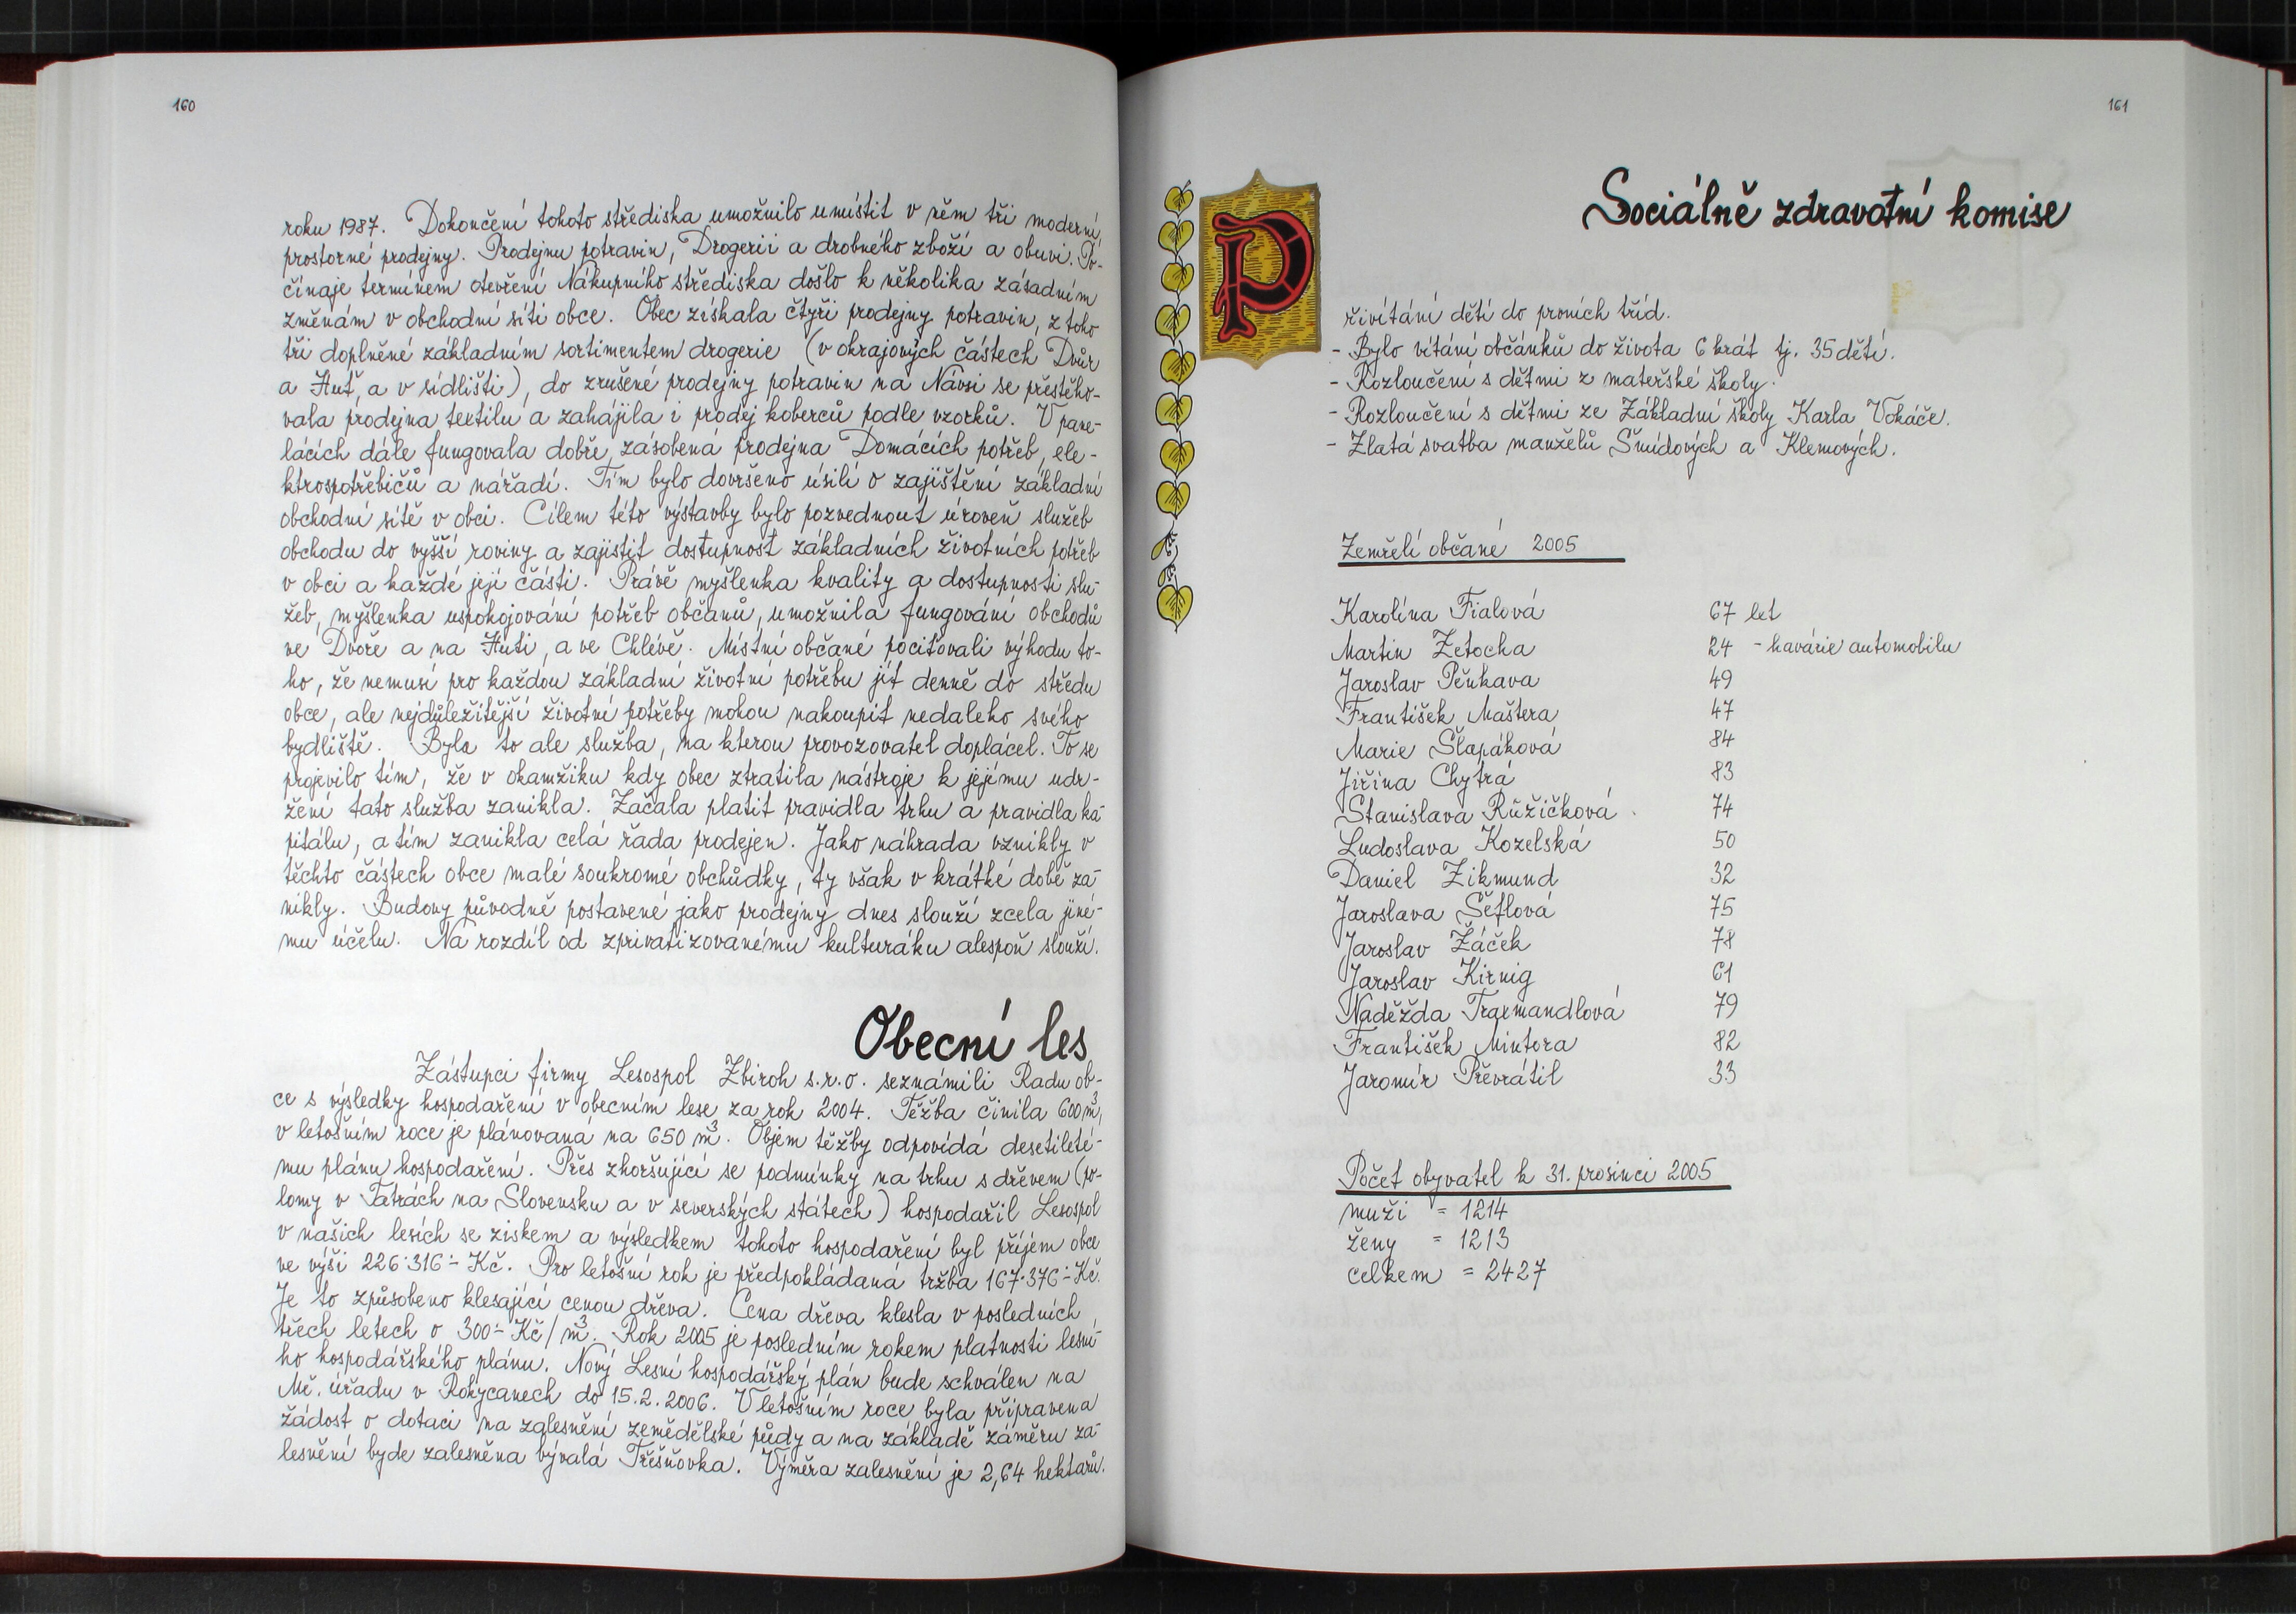 160
roku 1987. Dokončení tohoto střediska umožnilo umístit v něm tři moderní,
prostorné prodejny. Prodejnu potravin, Drogerii a drobného zboží a obuvi. Po-
čínaje termínem otevření Nákupního střediska došlo k několika zásadním
změnám v obchodní síti obce. Obec získala čtyři prodejny potravin, z toho
tři doplněné základním sortimentem drogerie (v okrajových částech Dvůr
a Huť, a v sídlišti), do zrušené prodejny potravin na Návsi se přestěho-
vala prodejna textilu a zahájila i prodej koberců podle vzorků. V pane-
lácích dále fungovala dobře zásobená prodejna Domácích potřeb, ele-
ktrospotřebičů a nářadí. Tím bylo dovršeno úsilí o zajištění základní
obchodní sítě v obci. Cílem této výstavby bylo pozvednout úroveň služeb
obchodu do vyšší roviny a zajistit dostupnost základních životních potřeb
v obci a každé její části. Právě myšlenka kvality a dostupnosti slu-
žeb, myšlenka uspokojování potřeb občanů, umožnila fungování obchodů
ve Dvoře a na Huti, a ve Chlévě. Místní občané pociťovali výhodu to-
ho, že nemusí pro každou základní životní potřebu jít denně do středu
obce, ale nejdůležitější životní potřeby mohou nakoupit nedaleko svého
bydliště. Byla to ale služba, na kterou provozovatel doplácel. To se
projevilo tím, že v okamžiku kdy obec ztratila nástroje k jejímu udr-
žení tato služba zanikla. Začala platit pravidla trhu a pravidla ka-
pitálu, a tím zanikla celá řada prodejen. Jako náhrada vznikly v
těchto částech obce malé soukromé obchůdky, ty však v krátké době za-
nikly. Budovy původně postavené jako prodejny dnes slouží zcela jiné-
mu účelu. Na rozdíl od zprivatizovanému kulturáku alespoň slouží.
Obecní les
Zástupci firmy Lesospol Zbiroh s.r.o. seznámili Radu ob-
ce s výsledky hospodaření v obecním lese za rok 2004. Těžba činila 600 m³,
v letošním roce je plánovaná na 650 m³. Objem těžby odpovídá desetileté-
mu plánu hospodaření. Přes zhoršující se podmínky na trhu s dřevem (po-
lomy v Tatrách na Slovensku a v severských státech) hospodařil Lesospol
v našich lesích se ziskem a výsledkem tohoto hospodaření byl příjem obce
ve výši 226·316.- Kč. Pro letošní rok je předpokládaná tržba 167·376.- Kč.
Je to způsobeno klesající cenou dřeva. Cena dřeva klesla v posledních
třech letech o 300.- Kč/m³. Rok 2005 je posledním rokem platnosti lesní-
ho hospodářského plánu. Nový Lesní hospodářský plán bude schválen na
Mě. úřadu v Rokycanech do 15.2.2006. V letošním roce byla připravena
žádost o dotaci na zalesnění zemědělské půdy a na základě záměru za-
lesnění byde zalesněna bývalá Třešňovka. Výměra zalesnění je 2,64 hektarů.
161
Sociálně zdravotní komise
P
řivítání dětí do prvních tříd.
- Bylo vítání občánků do života 6 krát tj. 35 dětí.
- Rozloučení s dětmi z mateřské školy.
- Rozloučení s dětmi ze Základní školy Karla Vokáče.
- Zlatá svatba manželů Šmídových a Klemových.
Zemřelí občané 2005
Karolína Fialová 67 let
Martin Zetocha 24 - havárie automobilu
Jaroslav Pěnkava 49
František Maštera 47
Marie Šlapáková 84
Jiřina Chytrá 83
Stanislava Růžičková 74
Ludoslava Kozelská 50
Daniel Zikmund 32
Jaroslava Šeflová 75
Jaroslav Žáček 78
Jaroslav Kirnig 61
Naděžda Traxmandlová 79
František Mintera 82
Jaromír Převrátil 33
Počet obyvatel k 31. prosinci 2005
muži = 1214
ženy = 1213
celkem = 2427